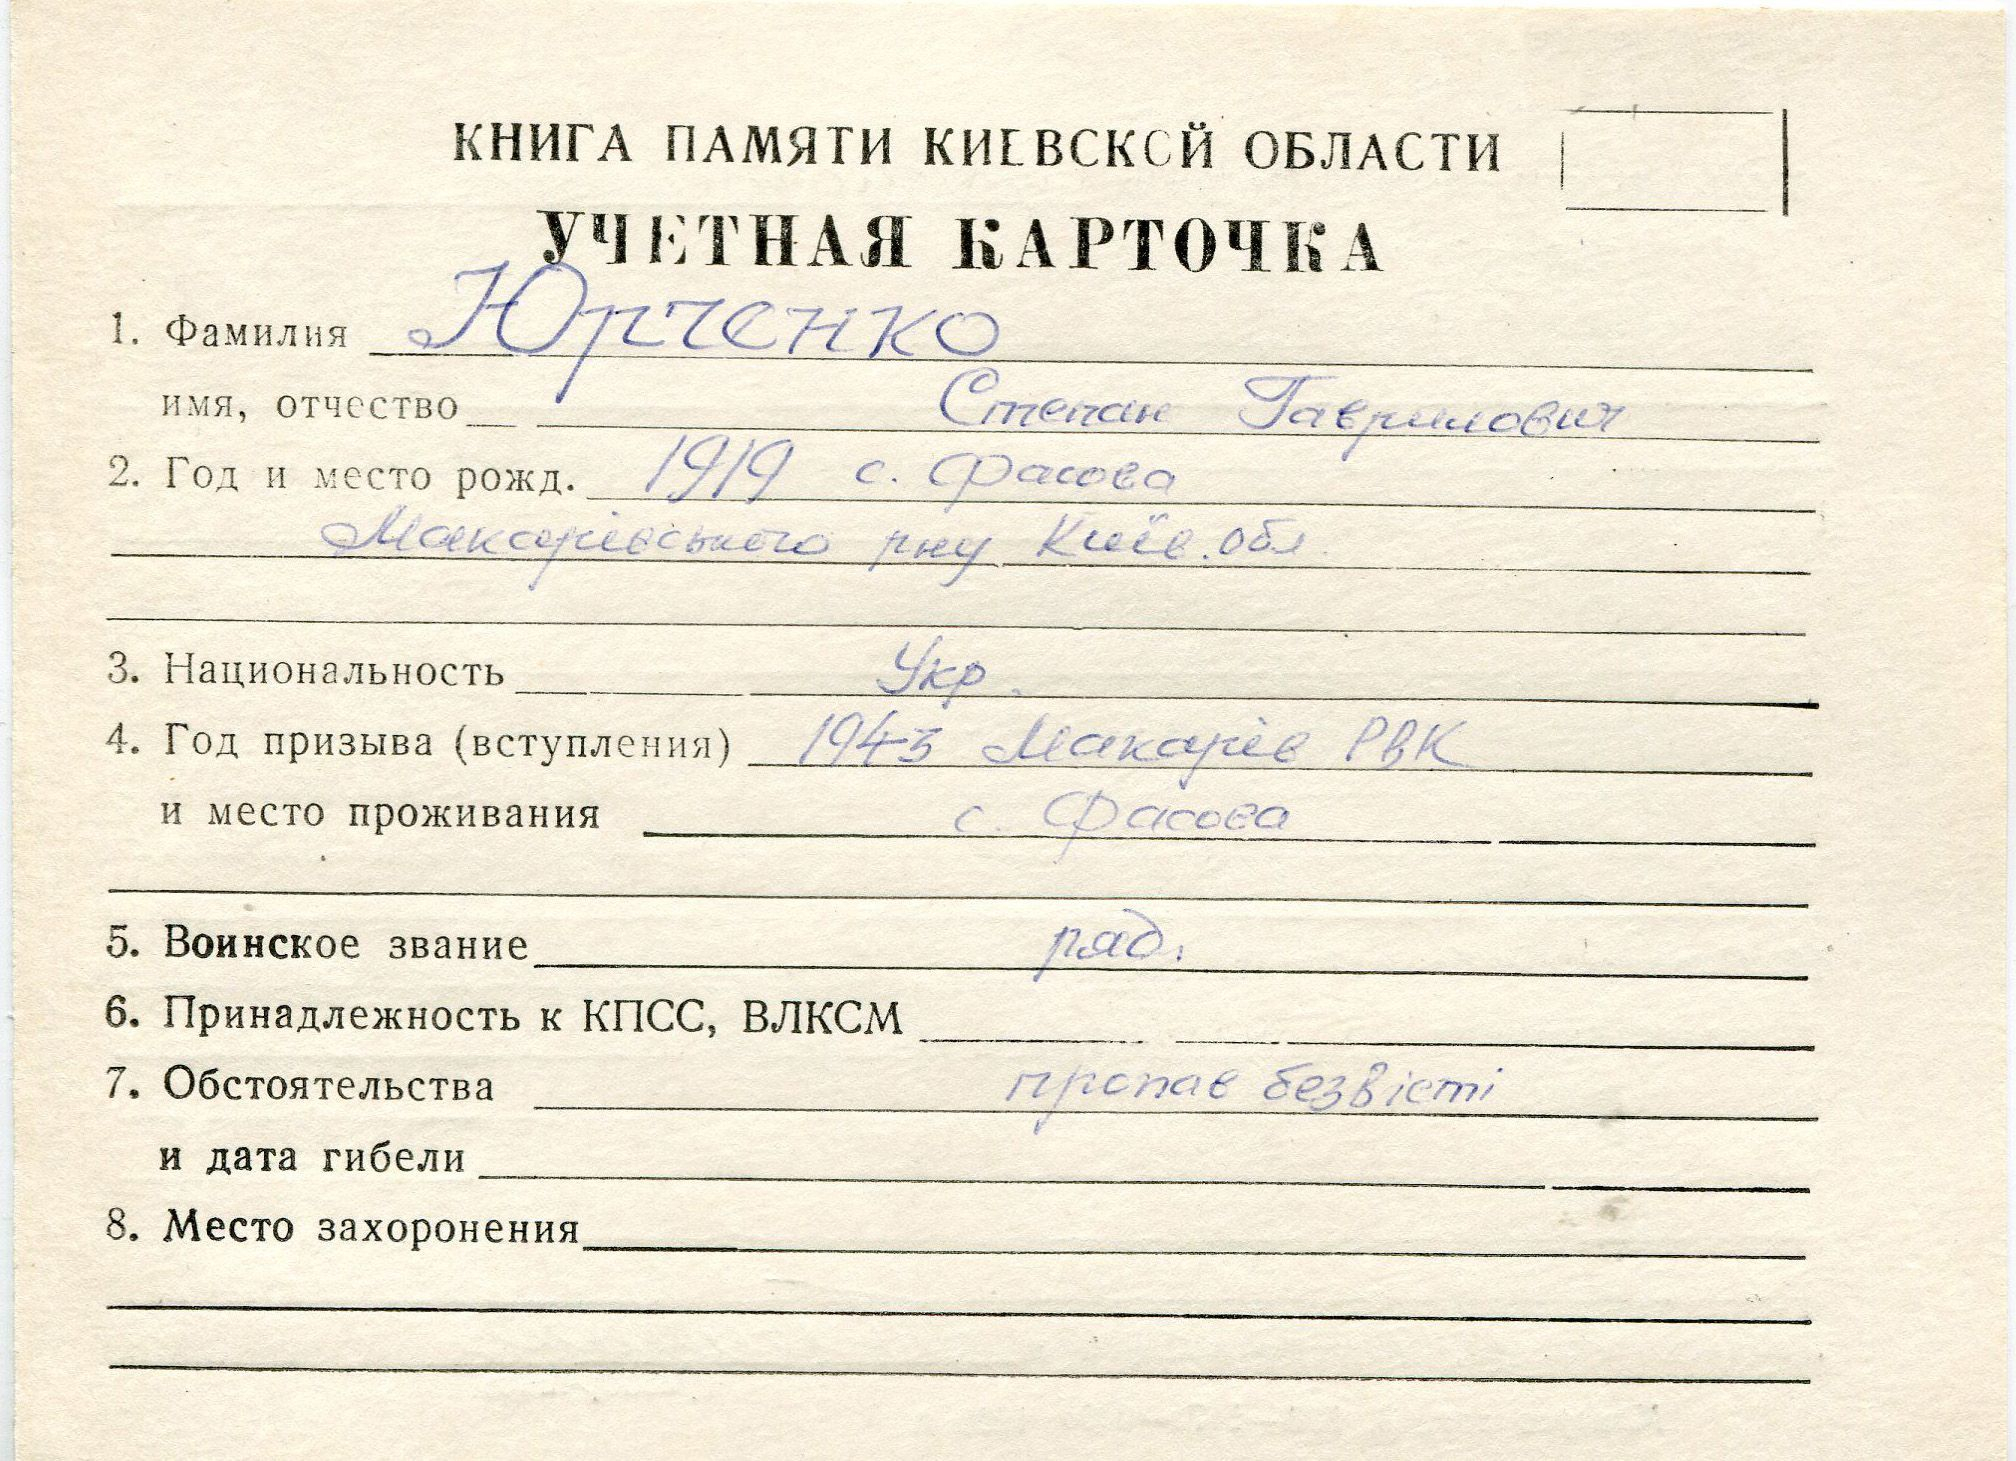 КНИГА ПАМЯТИ КИЕВСКОЙ ОБЛАСТИ
УЧЕТНАЯ КАРТОЧКА
1. Фамилия Юрченко
имя, отчество Степан Гаврилович
2. Год и место рожд. 1919 с. Фасова
Макарівського рну Київ. обл.
3. Национальность Укр.
4. Год призыва (вступления) 1943 Макарів РВК
и место проживания с. Фасова
5. Воинское звание ряд.
6. Принадлежность к КПСС, ВЛКСМ
7. Обстоятельства пропав безвісті
и дата гибели
8. Место захоронения